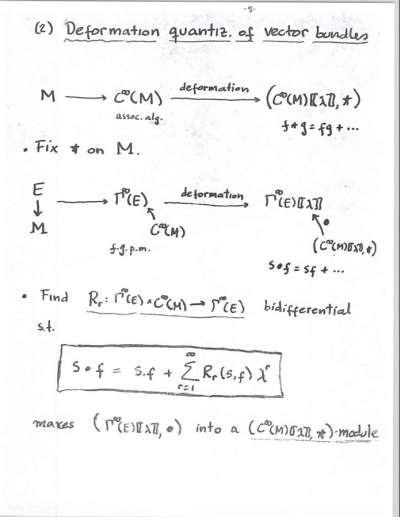 -5-
(2) Deformation quantiz. of vector bundles
M → C^∞(M) deformation → (C^∞(M)[[λ]], ⋆)
assoc. alg.
f ⋆ g = fg + ...
• Fix ⋆ on M.
E → Γ^∞(E) deformation → Γ^∞(E)[[λ]]
↓
M
C^∞(M)
(C^∞(M)[[λ]], ⋆)
f.g.p.m.
s • f = sf + ...
• Find R_r : Γ^∞(E) × C^∞(M) → Γ^∞(E) bidifferential
s.t.
s • f = s.f + ∑_{r=1}^∞ R_r(s,f) λ^r
makes (Γ^∞(E)[[λ]], •) into a (C^∞(M)[[λ]], ⋆)-module